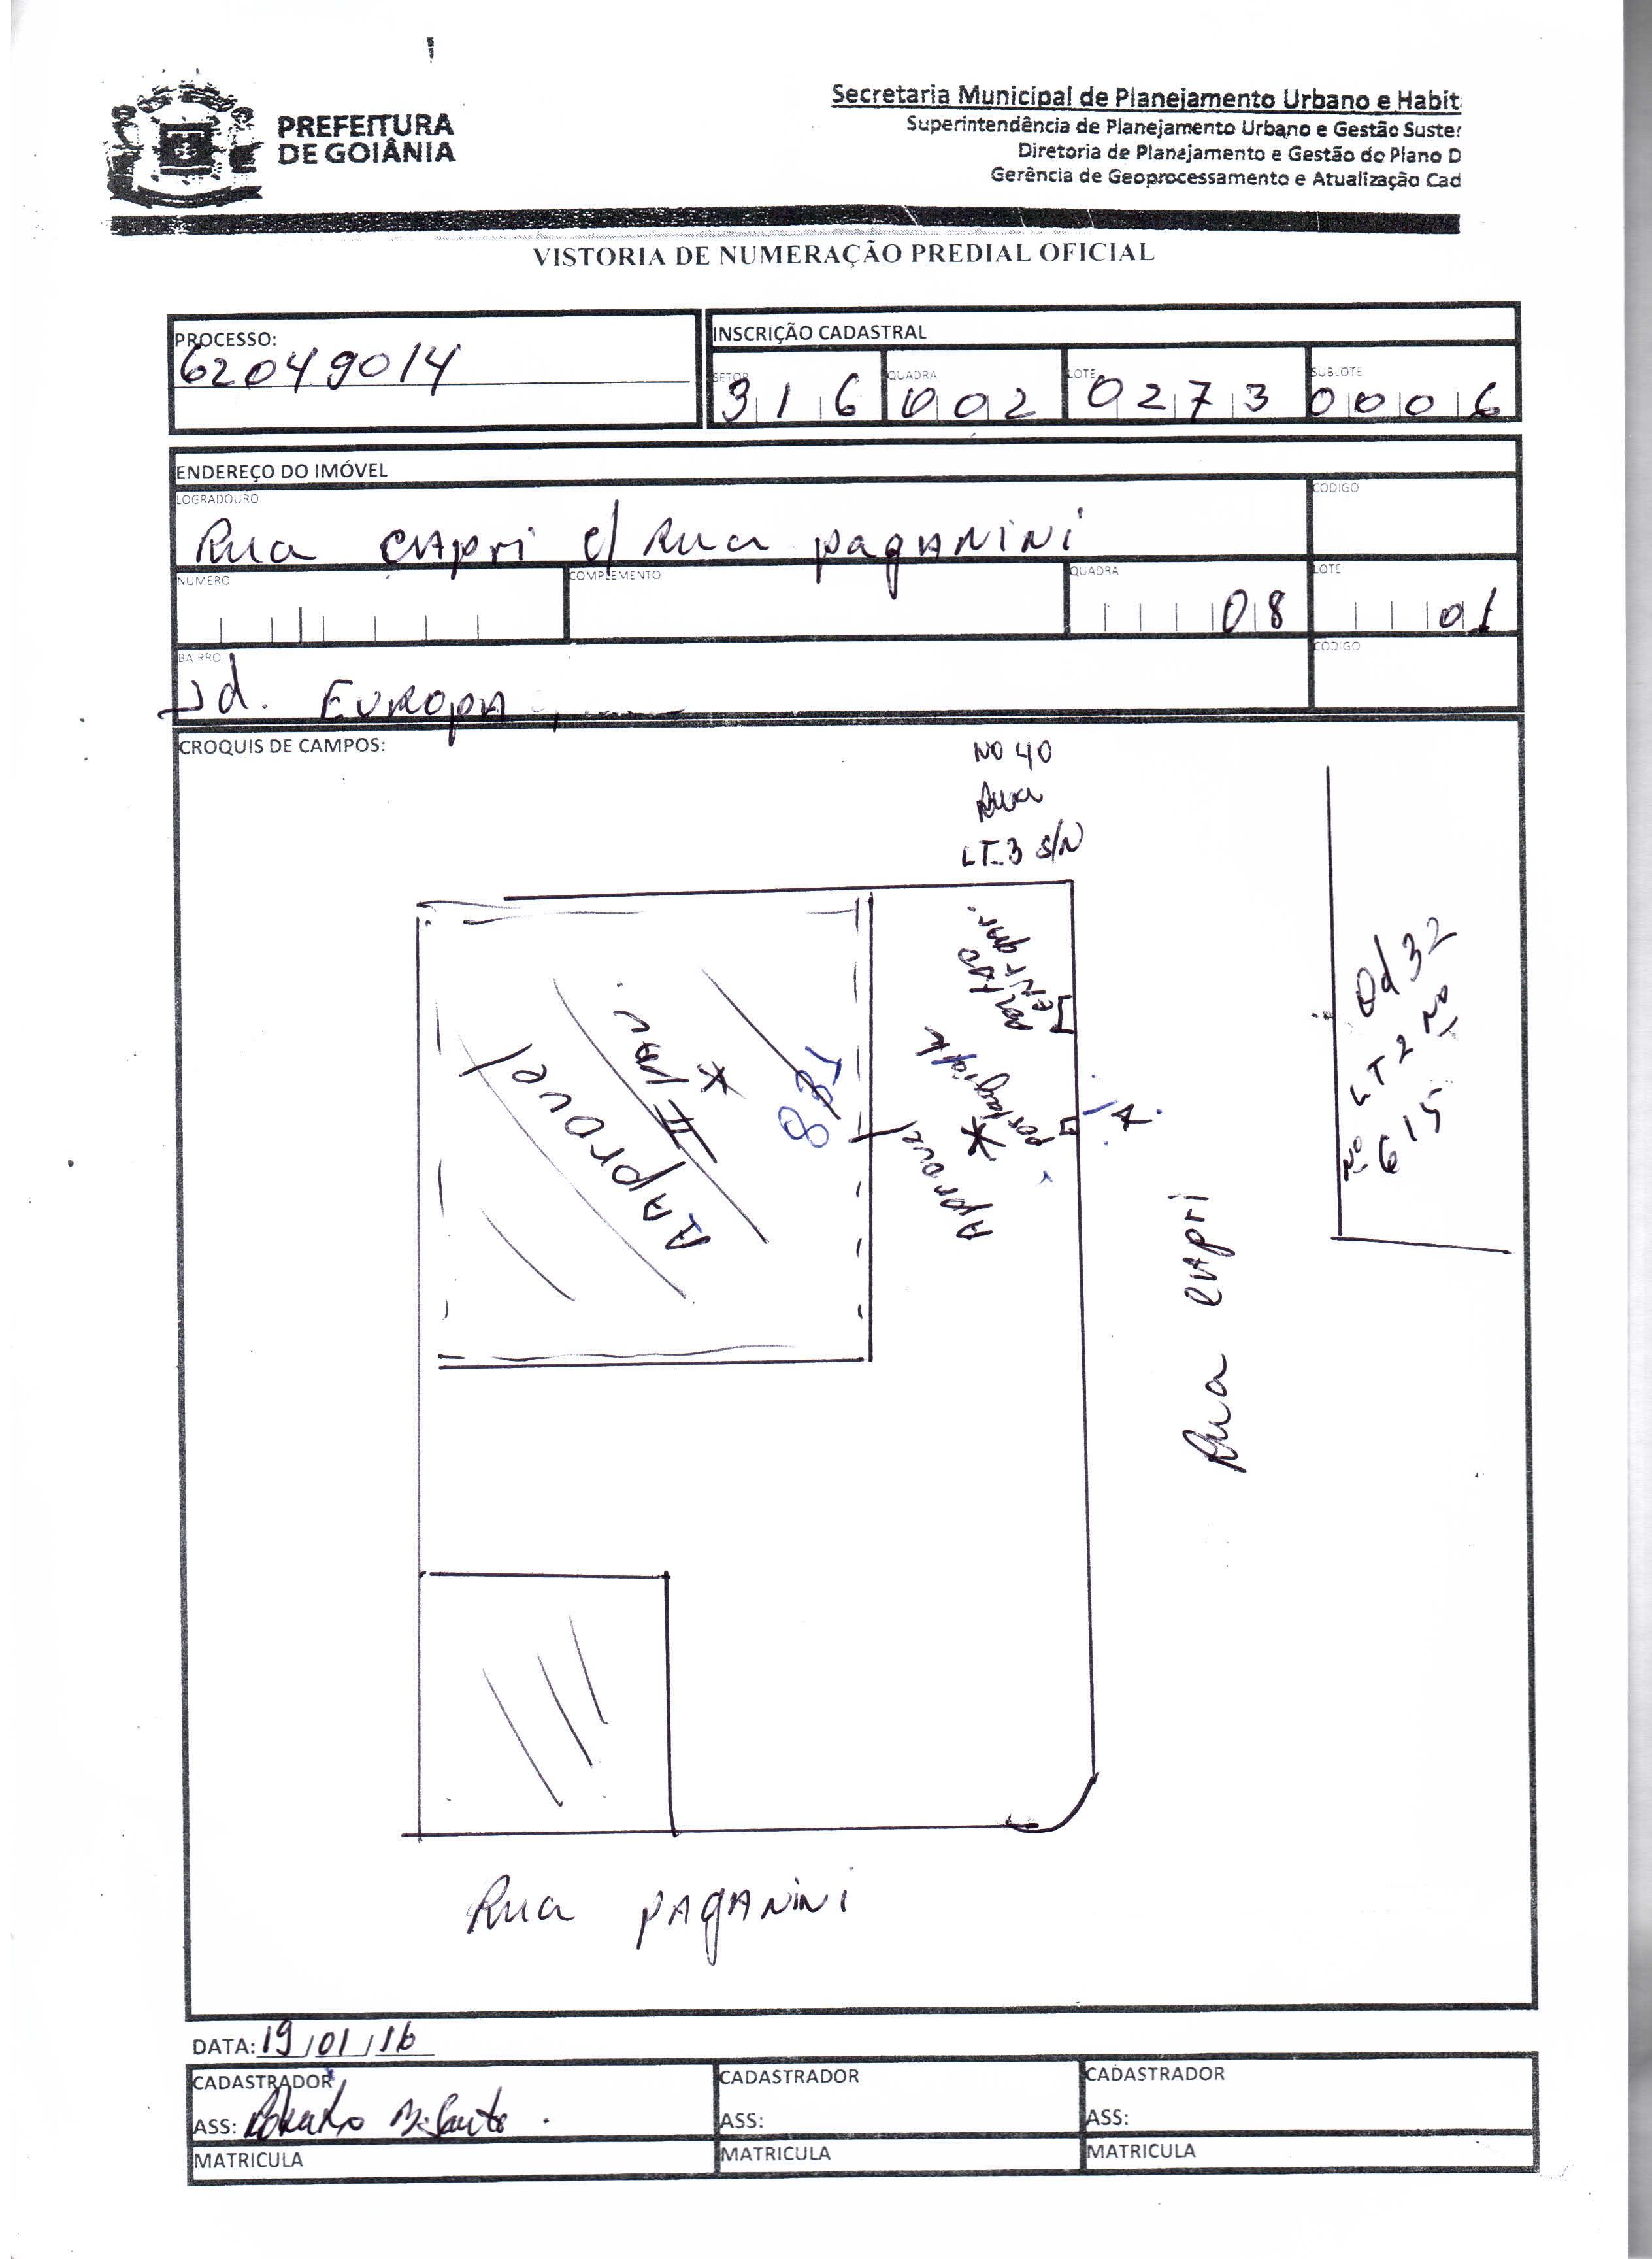 PREFEITURA
DE GOIÂNIA
Secretaria Municipal de Planejamento Urbano e Habit
Superintendência de Planejamento Urbano e Gestão Suster
Diretoria de Planejamento e Gestão do Plano D
Gerência de Geoprocessamento e Atualização Cad
VISTORIA DE NUMERAÇÃO PREDIAL OFICIAL
PROCESSO:
62049014
INSCRIÇÃO CADASTRAL
SETOR QUADRA LOTE SUBLOTE
316 002 0273 0006
ENDEREÇO DO IMÓVEL
LOGRADOURO CODIGO
Rua CAPRI c/ Rua pagANiNi
NUMERO COMPLEMENTO QUADRA LOTE
08 01
BAIRRO CODIGO
Jd. EUROPA
CROQUIS DE CAMPOS:
No 40
Rua
LT.3 S/N
Qd 32
LT 2 Nº
Nº 615
II PAV.
831
Rua CAPRI
Rua PAgANiNi
DATA: 19/01/16
CADASTRADOR CADASTRADOR CADASTRADOR
ASS: ASS: ASS:
MATRICULA MATRICULA MATRICULA